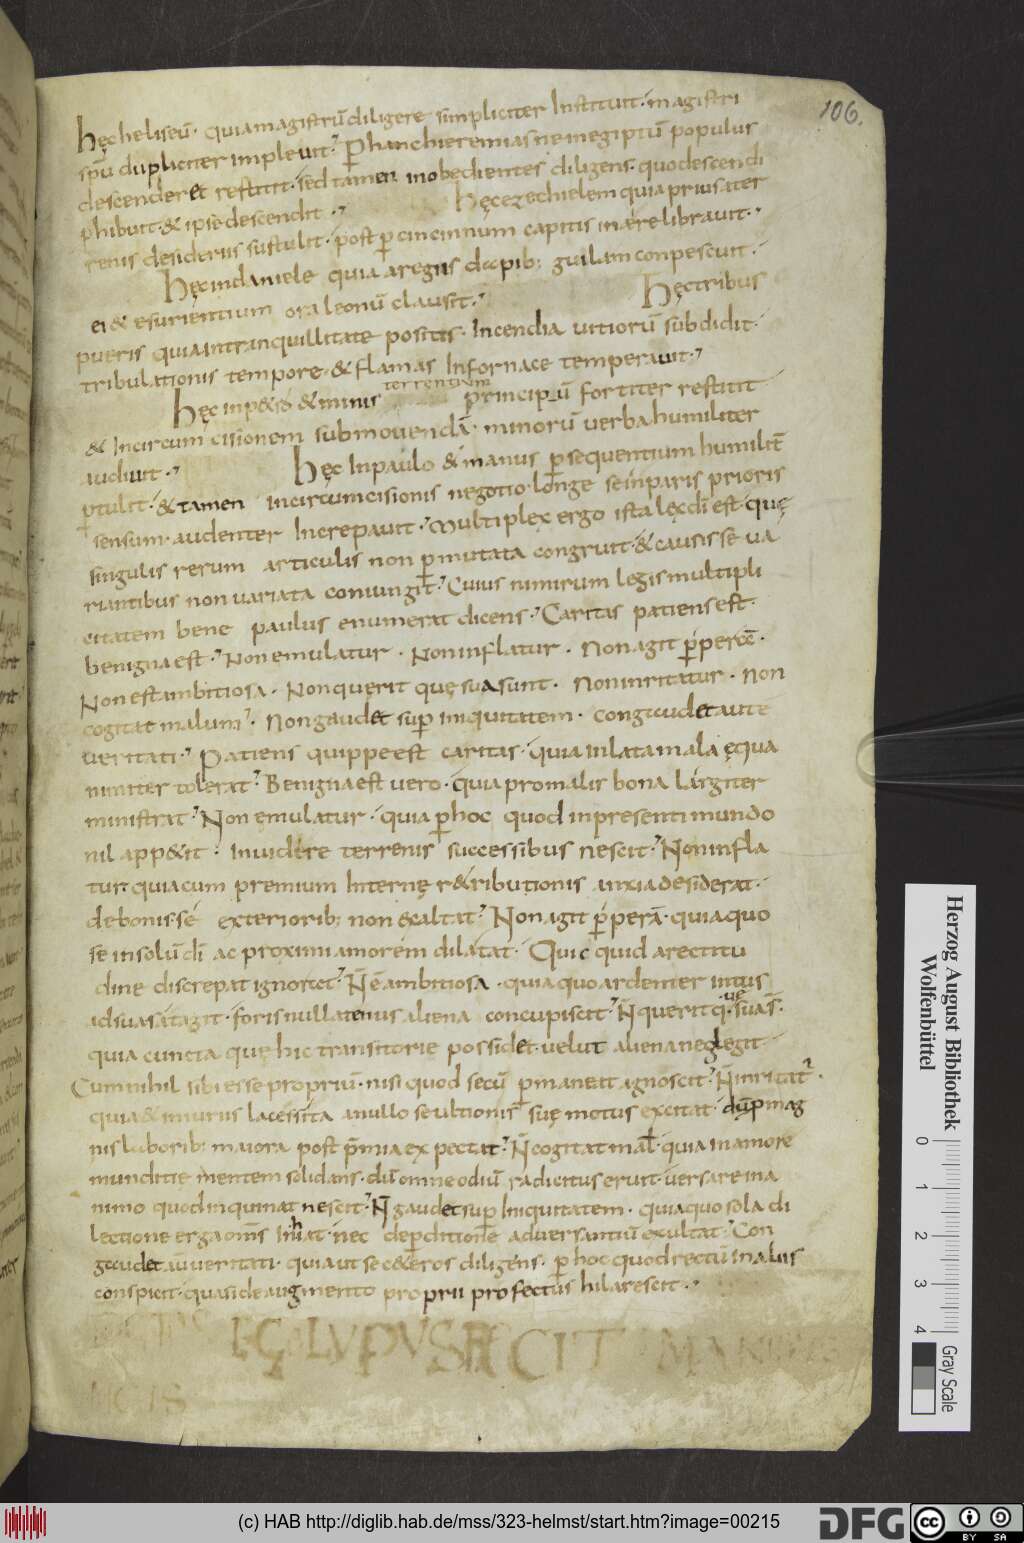 106.
hęc heliseū· quia magistrū diligere simpliciter Instituit· magistri
spū dupliciter impleuit· p hanc hieremias ne in egiptū populus
descenderet restitit· sed tamen inobedientes diligens· quo descendi
phibuit· & ipse descendit· hęc ezechielem quia prius a ter
renis desideriis sustulit· post p cincinnum capitis in aere librauit·
hęc in daniele quia a regiis dapib; gulam conpescuit·
ei & esurientium ora leonū clausit· hęc tribus
pueris quia in tranquillitate positis· Incendia uitiorū subdidit·
tribulationis tempore· & flamas In fornace temperauit·
terrentium
hęc in p&ro & minis principū fortiter restitit
& In circumcisionem submouendā· minorū uerba humiliter
audiuit· hęc In paulo & manus psequentium humilit
ptulit· & tamen in circumcisionis negotio· longe se inparis prioris
sensum· audenter Increpauit· Multiplex ergo ista lex dī est· quę
singulis rerum articulis non pmutata congruit· & causis se ua
riantibus non uariata coniungit· Cuius nimirum legis multipli
citatem bene paulus enumerat dicens· Caritas patiens est·
benigna est· Non emulatur· Non inflatur· Non agit pperā·
Non est ambitiosa· Non querit quę sua sunt· Non inritatur· Non
cogitat malum· Non gaudet sup iniquitatem· congaudet aute
ueritati· Patiens quippe est caritas· quia inlata mala ęqua
nimiter tolerat· Benigna est uero· quia pro malis bona largiter
ministrat· Non emulatur· quia p hoc quod in presenti mundo
nil app&it· inuidere terrenis successibus nescit· Non infla
tur· quia cum premium Internę r&ributionis anxia desiderat·
de bonis· se exteriorib; non exaltat· Non agit pperā· quia quo
se in solū dī ac proximi amorem dilatat· Quicquid a rectitu
dine discrepat ignorat· N̄ ē ambitiosa· quia quo ardenter intus
ad sua satagit· foris nullatenus aliena concupiscit· N̄ querit q· sua s̄·
uę
quia cuncta quę hic transitorie possidet· uelut aliena neglegit·
Cum nihil sibi esse propriū· nisi quod secū pmaneat agnoscit· N̄ inritat·
quia & iniuriis lacessita a nullo se ultionis suę motus excitat· dū p mag
nis laborib; maiora post p̄mia expectat· N̄ cogitat mal· quia in amore
munditie mentem solidans· dū omne odiū radicitus eruit· uersare in a
nimo quod inquinat nescit· N̄ gaudet sup Iniquitatem· quia quo sola di
lectione erga om̄s Inhiat· nec de pditione aduersantiū exultat· Con
gaudet aū ueritati· quia ut se c&eros diligens· p hoc quod rectū in aliis
conspicit· quasi de augmento proprii profectus hilarescit·
LUPUS FECIT
Herzog August Bibliothek
Wolfenbüttel
0 1 2 3 4
Gray Scale
(c) HAB http://diglib.hab.de/mss/323-helmst/start.htm?image=00215
DFG
cc BY SA